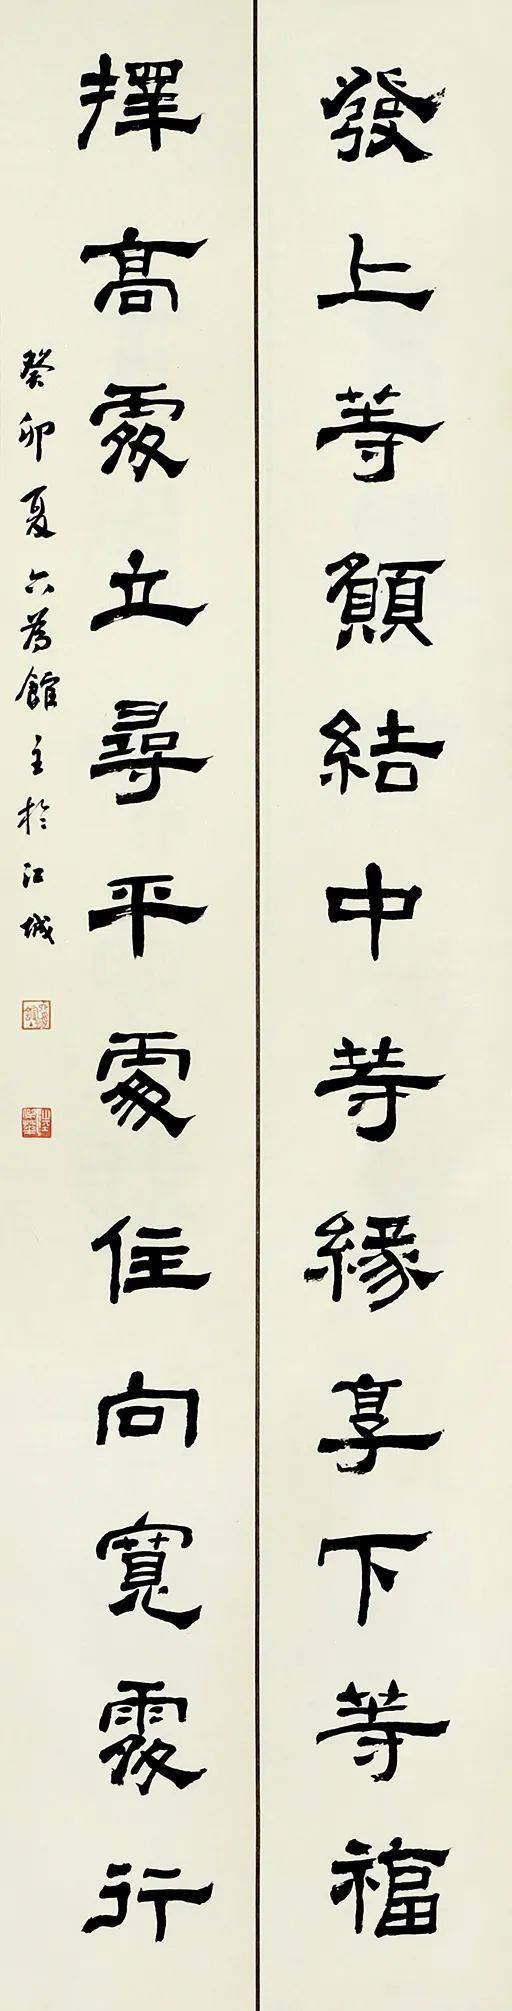 發上等願結中等緣享下等福
擇高處立尋平處住向寬處行
癸卯夏六為館主於江城